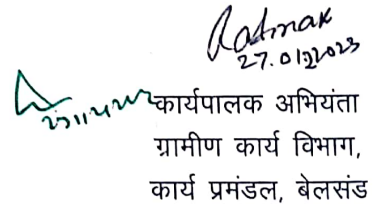 27.01.2023
कार्यपालक अभियंता
ग्रामीण कार्य विभाग,
कार्य प्रमंडल, बेलसंड